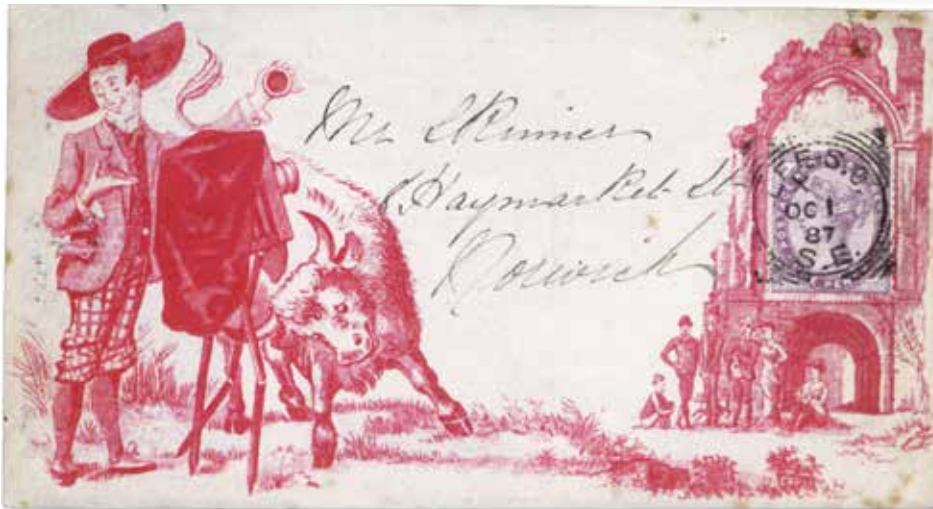 Mr Skinner
Haymarket St
Norwich
F.S.O.
OC 1
87
S.E.